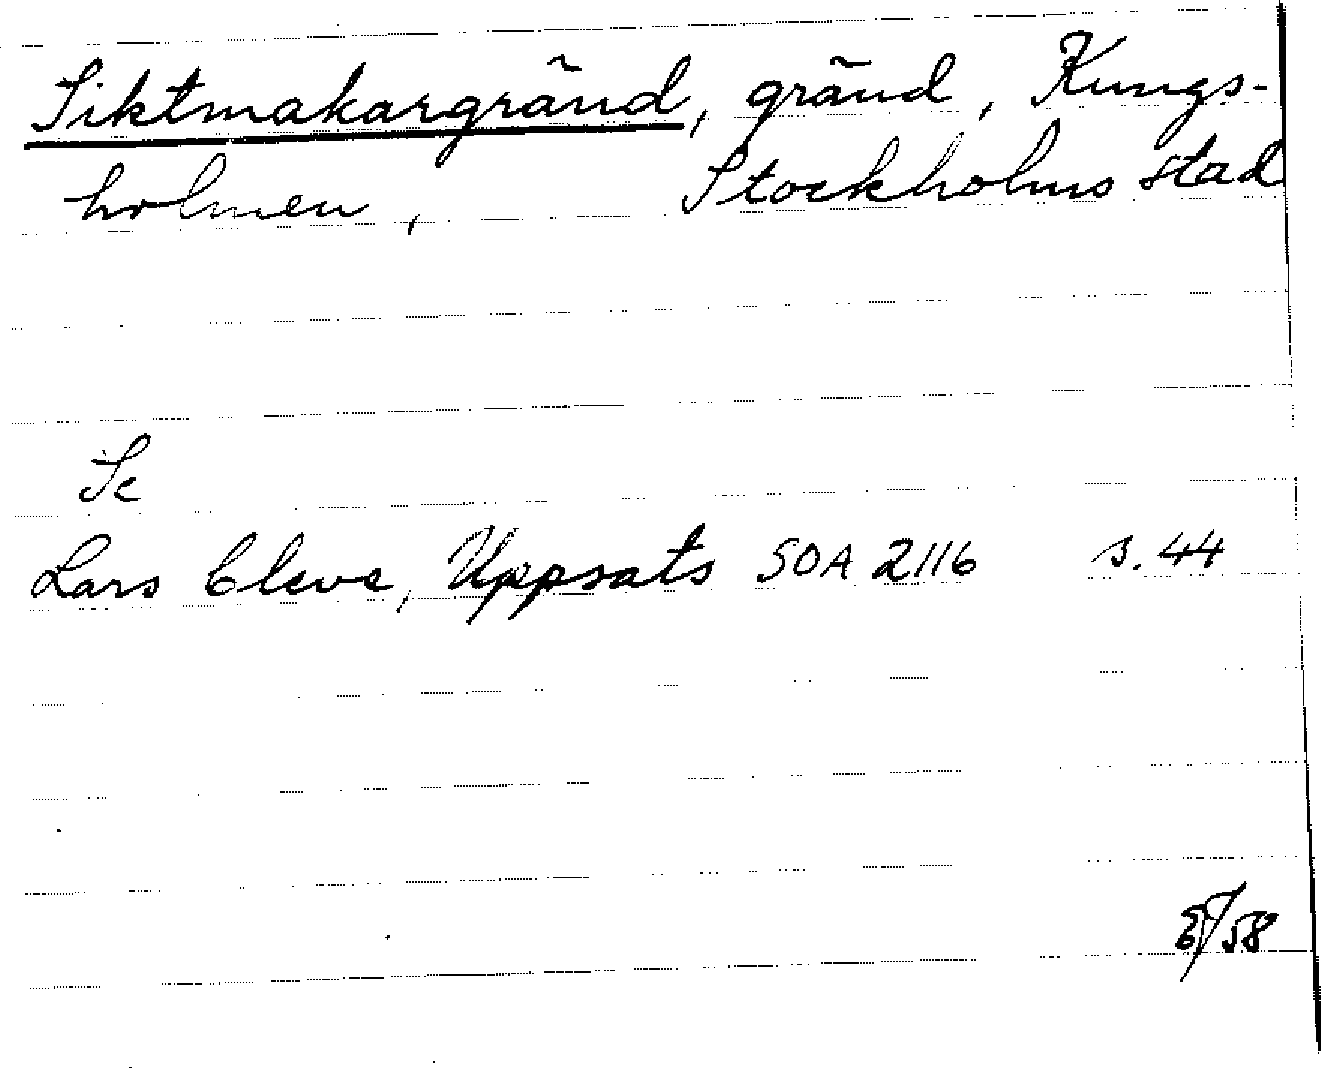 Siktmakargränd, gränd, Kungs-
holmen, Stockholms stad
Se
Lars Cleve, Uppsats SOA 2116 s. 44
/58